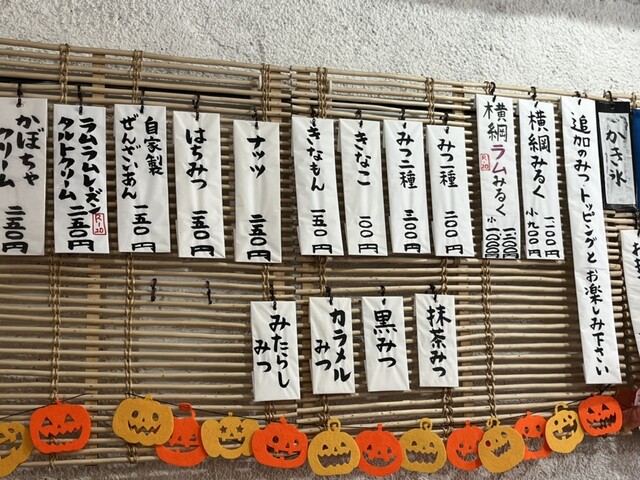 かき氷
追加のみつトッピングとお楽しみ下さい
横綱みるく
一一〇〇円
小 九〇〇円
横綱ラムみるく
R-20
小 一〇〇〇円
みつ一種
二〇〇円
みつ二種
三〇〇円
きなこ
一〇〇円
きなもん
一五〇円
ナッツ
二五〇円
はちみつ
一五〇円
自家製
ぜんざいあん
一五〇円
ラムラムレーズン
タルトクリーム
二五〇円
R-20
かぼちゃ
クリーム
二五〇円
抹茶みつ
黒みつ
カラメル
みつ
みたらし
みつ